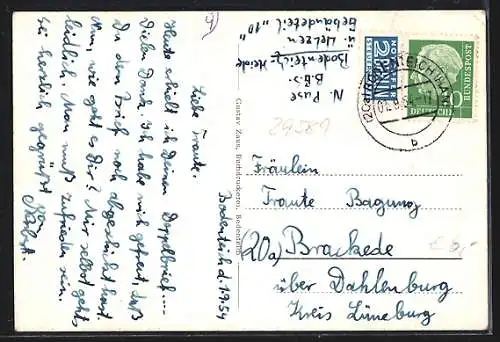 Bodenteich d. 1.9.54
Liebe Traute.
Heute erhielt ich Deinen Doppelbrief....
Vielen Dank. Ich habe mich gefreut, daß
Du den Brief noch abgeschickt hast.
Nun, wie geht es Dir? Mir selbst geht's
leidlich. Man muß zufrieden sein.
Sei herzlich gegrüßt von
Gustav Zaun, Buchdruckerei, Bodenteich
N. Puse
B.G.S.
Bodenteich, Heide
ü. Uelzen
Gebäudeteil "10"
NOTOPFER
2 BERLIN
STEUERMARKE
DEUTSCHE
BUNDESPOST
10
(20a) BODENTEICH
b
29589
Fräulein
Traute Bagung
(20a) Brackede
über Dahlenburg
Kreis Lüneburg